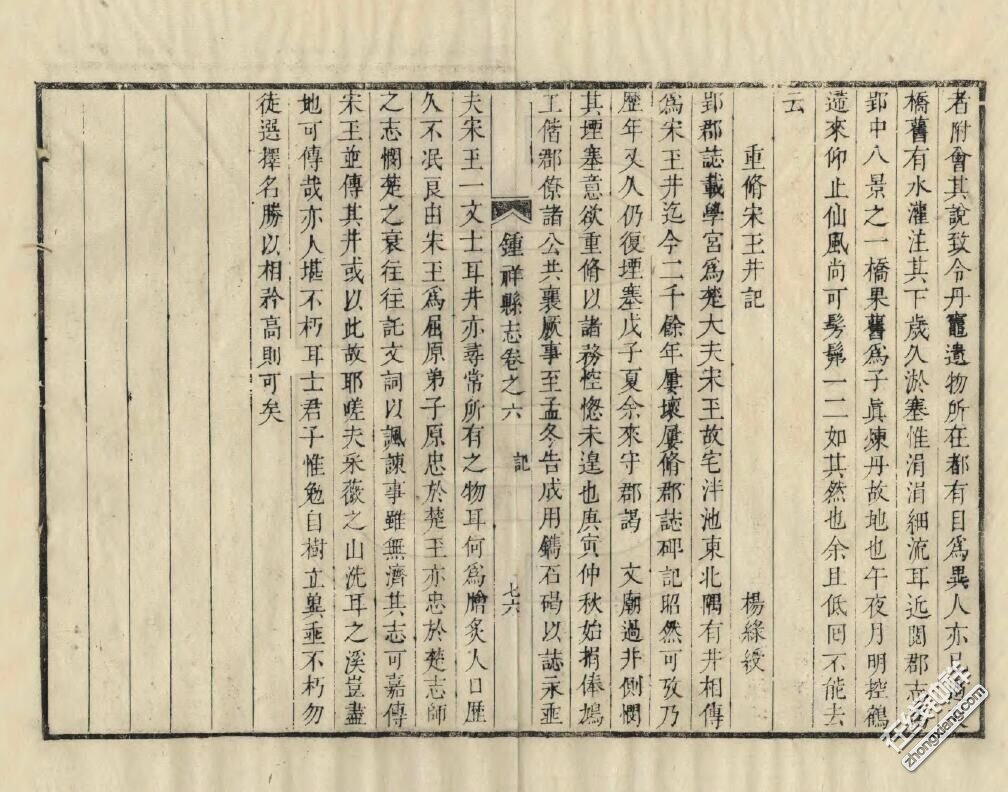 者附會其說致令丹竈遺物所在都有目爲異人亦已
橋舊有水灌注其下歲久淤塞惟涓涓細流耳近閱郡志
郢中八景之一橋果舊爲子眞煉丹故地也午夜月明控鶴
遠來仰止仙風尚可髣髴一二如其然也余且低回不能去
云
重脩宋玉井記 楊緣綬
郢郡誌載學宮爲楚大夫宋玉故宅泮池東北隅有井相傳
爲宋玉井迄今二千餘年屢壞屢脩郡誌碑記昭然可攷乃
歷年又久仍復堙塞戊子夏余來守郡謁 文廟過井側憫
其堙塞意欲重脩以諸務悾惚未遑也庚寅仲秋始捐俸鳩
工偕郡僚諸公共襄厥事至孟冬告成用鐫石碣以誌永垂
鍾祥縣志卷之六 記 七六
夫宋玉一文士耳井亦尋常所有之物耳何爲膾炙人口歷
久不泯良由宋玉爲屈原弟子原忠於楚玉亦忠於楚志師
之志憫楚之衰往往託文詞以諷諫事雖無濟其志可嘉傳
宋玉並傳其井或以此故耶嗟夫采薇之山洗耳之溪豈盡
地可傳哉亦人堪不朽耳士君子惟勉自樹立冀垂不朽勿
徒選擇名勝以相矜高則可矣
在线钟祥
zhongxiang.com